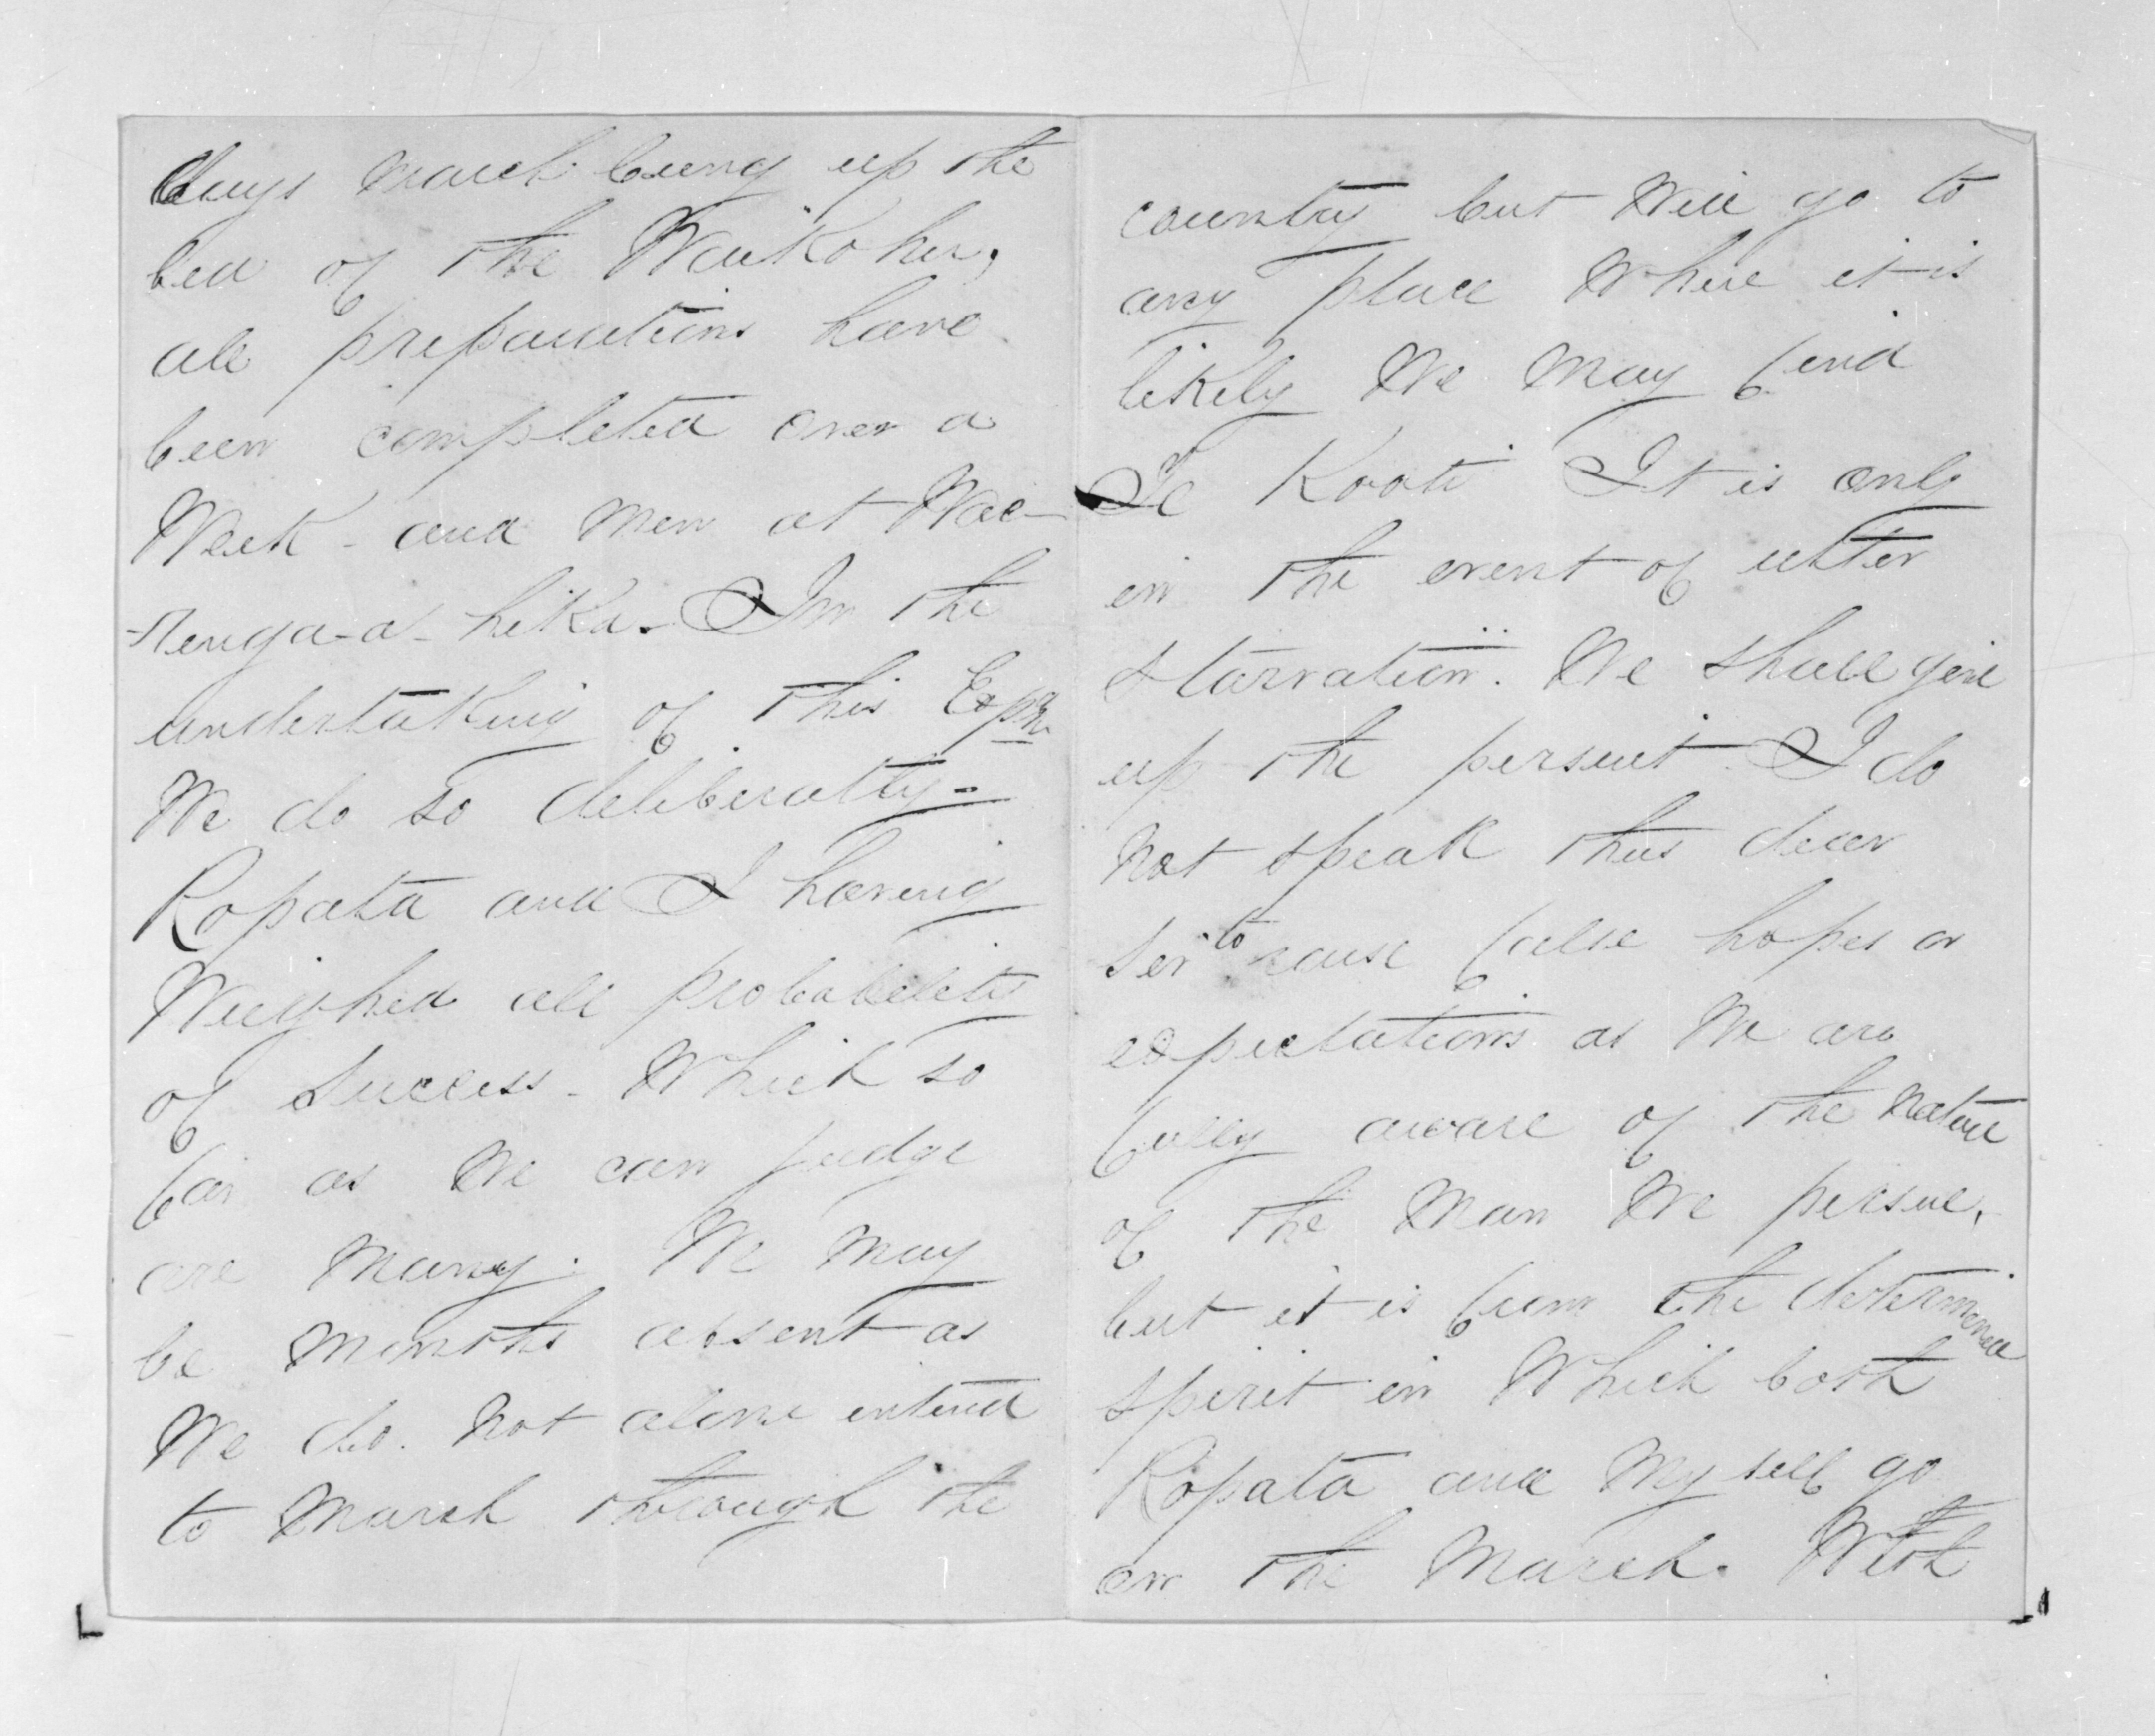 days march being up the
bed of the Waikohu,
all preparations have
been completed over a
Week - and men at Wae-
-renga-a-hika. In the
undertaking of this Expn
We do so deliberatly -
Ropata and I having
Weighed all probabilitis
of Success - Which so
far as We can judge
are Many. We May
be Months absent as
We do not alone intend
to March through the
country but Will go to
any place Where it is
likely We May find
Te Kooti It is only
in the event of utter
starvation. We shall give
up the persuit. I do
Not speak thus dear
Sir to raise false hopes or
expectations as We are
fully aware of the Nature
of the Man We persue,
but it is from the determined
spirit in Which both
Ropata and My self go
on the March. With